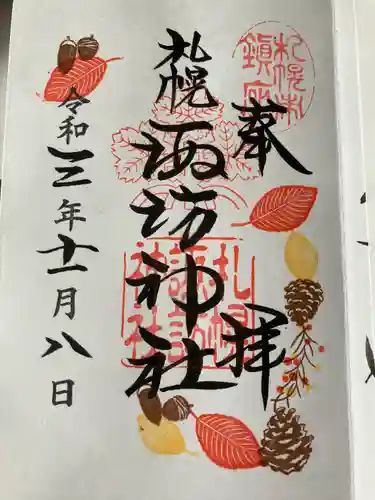 奉拝
札幌鎮座
札幌諏訪神社
札幌諏訪神社
令和三年十一月八日